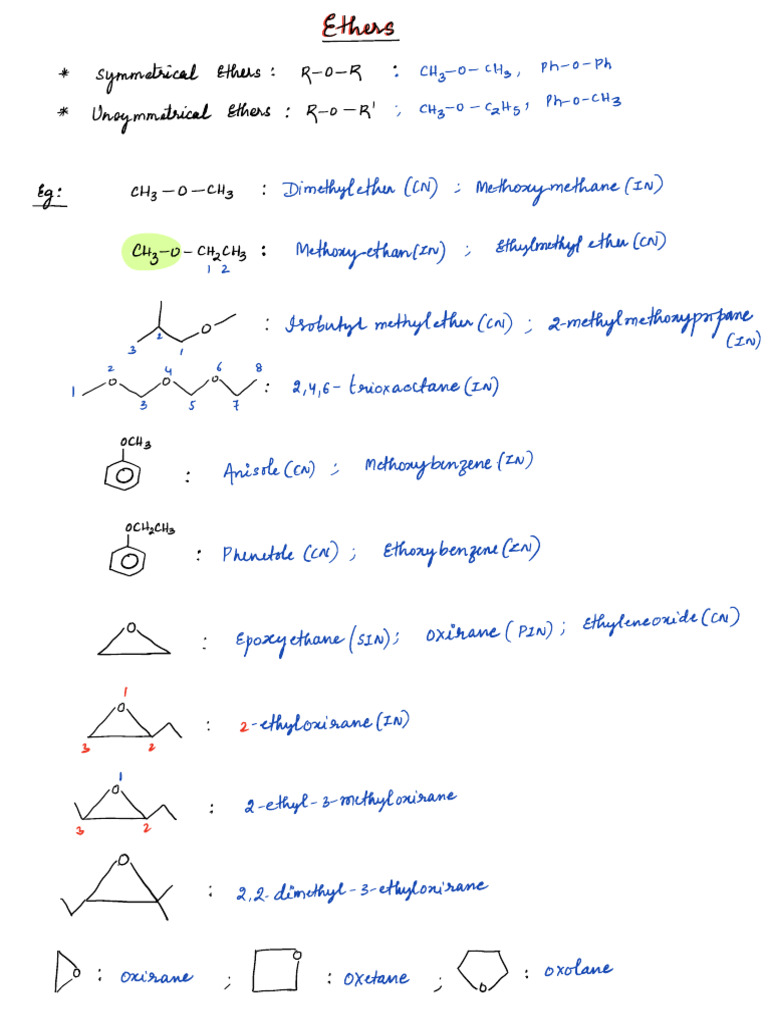 Ethers
* Symmetrical Ethers : R-O-R : CH3-O-CH3, Ph-O-Ph
* Unsymmetrical Ethers : R-O-R' ; CH3-O-C2H5, Ph-O-CH3
Eg: CH3-O-CH3 : Dimethylether (CN) ; Methoxymethane (IN)
CH3-O-CH2CH3 : Methoxy-ethan (IN) ; Ethylmethyl ether (CN)
1 2
O : Isobutyl methylether (CN) ; 2-methylmethoxypropane (IN)
3 2 1
2 4 6 8
1 O O O : 2,4,6-trioxaoctane (IN)
3 5 7
OCH3
: Anisole (CN) ; Methoxybenzene (IN)
OCH2CH3
: Phenetole (CN) ; Ethoxybenzene (IN)
O : Epoxyethane (SIN); Oxirane (PIN) ; Ethyleneoxide (CN)
1
O : 2-ethyloxirane (IN)
3 2
1
O : 2-ethyl-3-methyloxirane
3 2
O : 2,2-dimethyl-3-ethyloxirane
O : oxirane ; O : oxetane ; O : oxolane